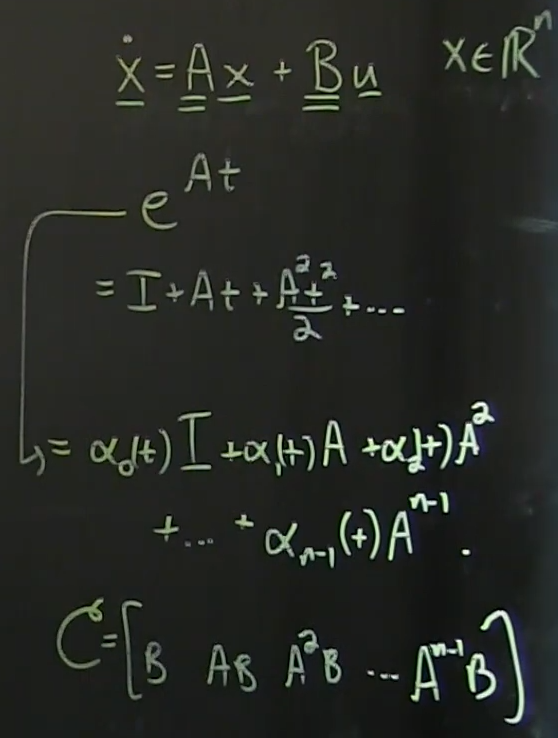 ẋ = A x + B u    x ∈ ℝⁿ
e^{At}
= I + At + A²t²/2 + ...
= α₀(t) I + α₁(t) A + α₂(t) A²
+ ... + αₙ₋₁(t) Aⁿ⁻¹ .
C = [B  AB  A²B  ...  Aⁿ⁻¹B]